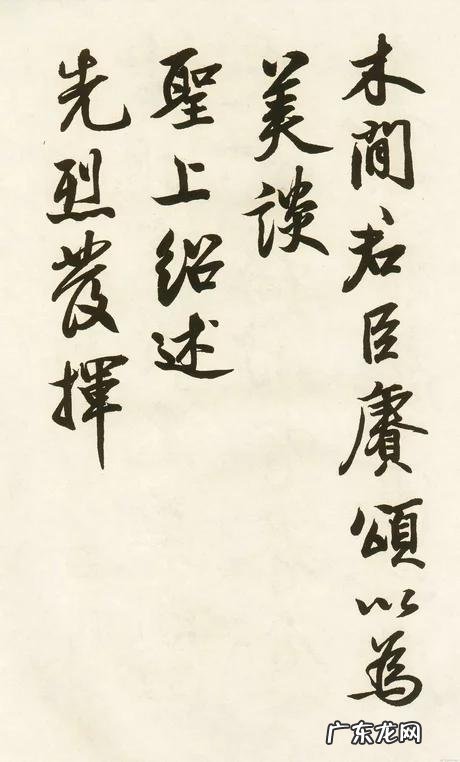 木間君臣賡頌以為
美談
聖上紹述
先烈發揮
广东龙网